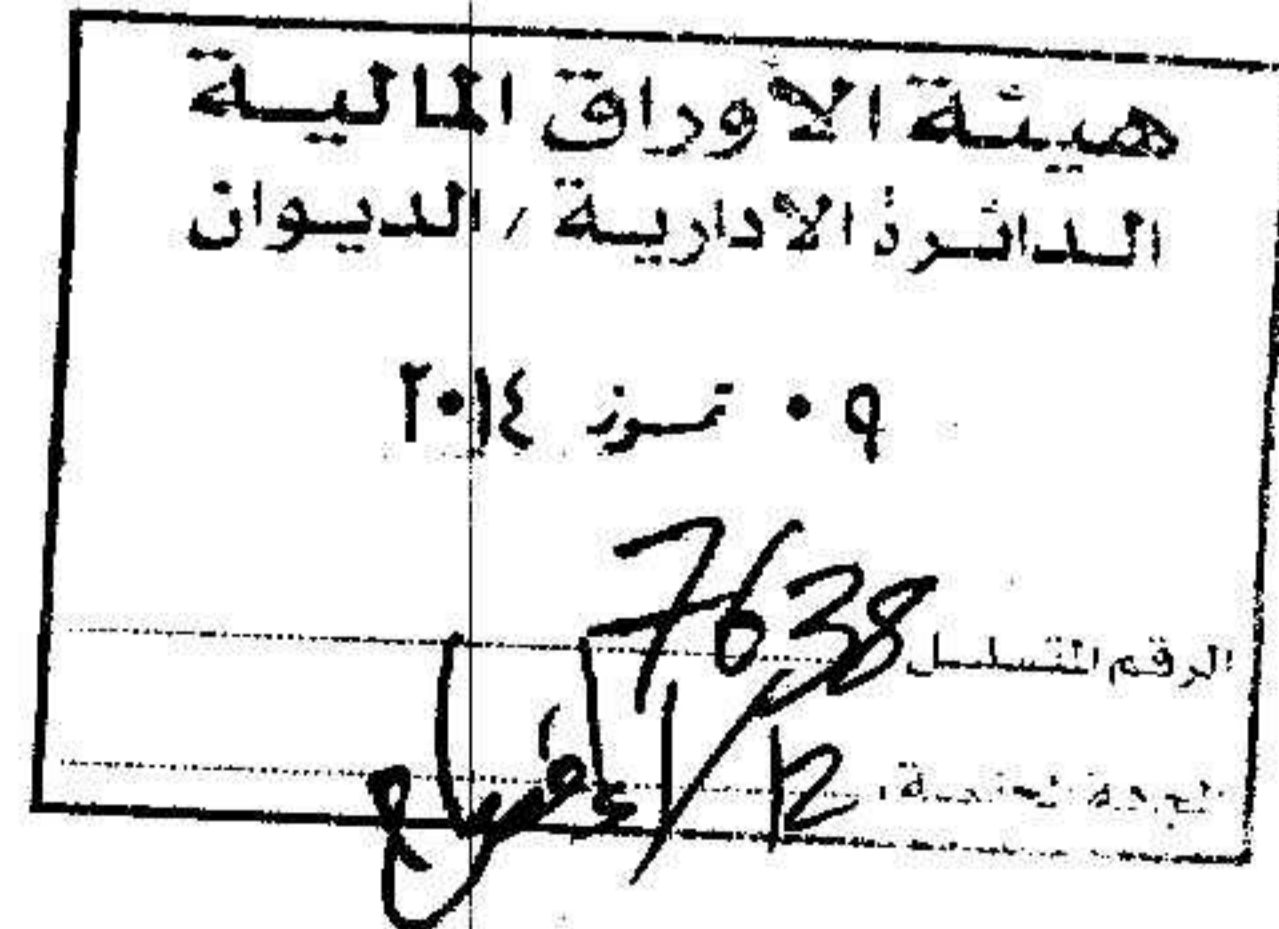 هيئة الأوراق المالية
الدائرة الادارية / الديوان
٠٩ تموز ٢٠١٤
الرقم المتسلسل 7638
الجهة المختصة 12/ الافصاح